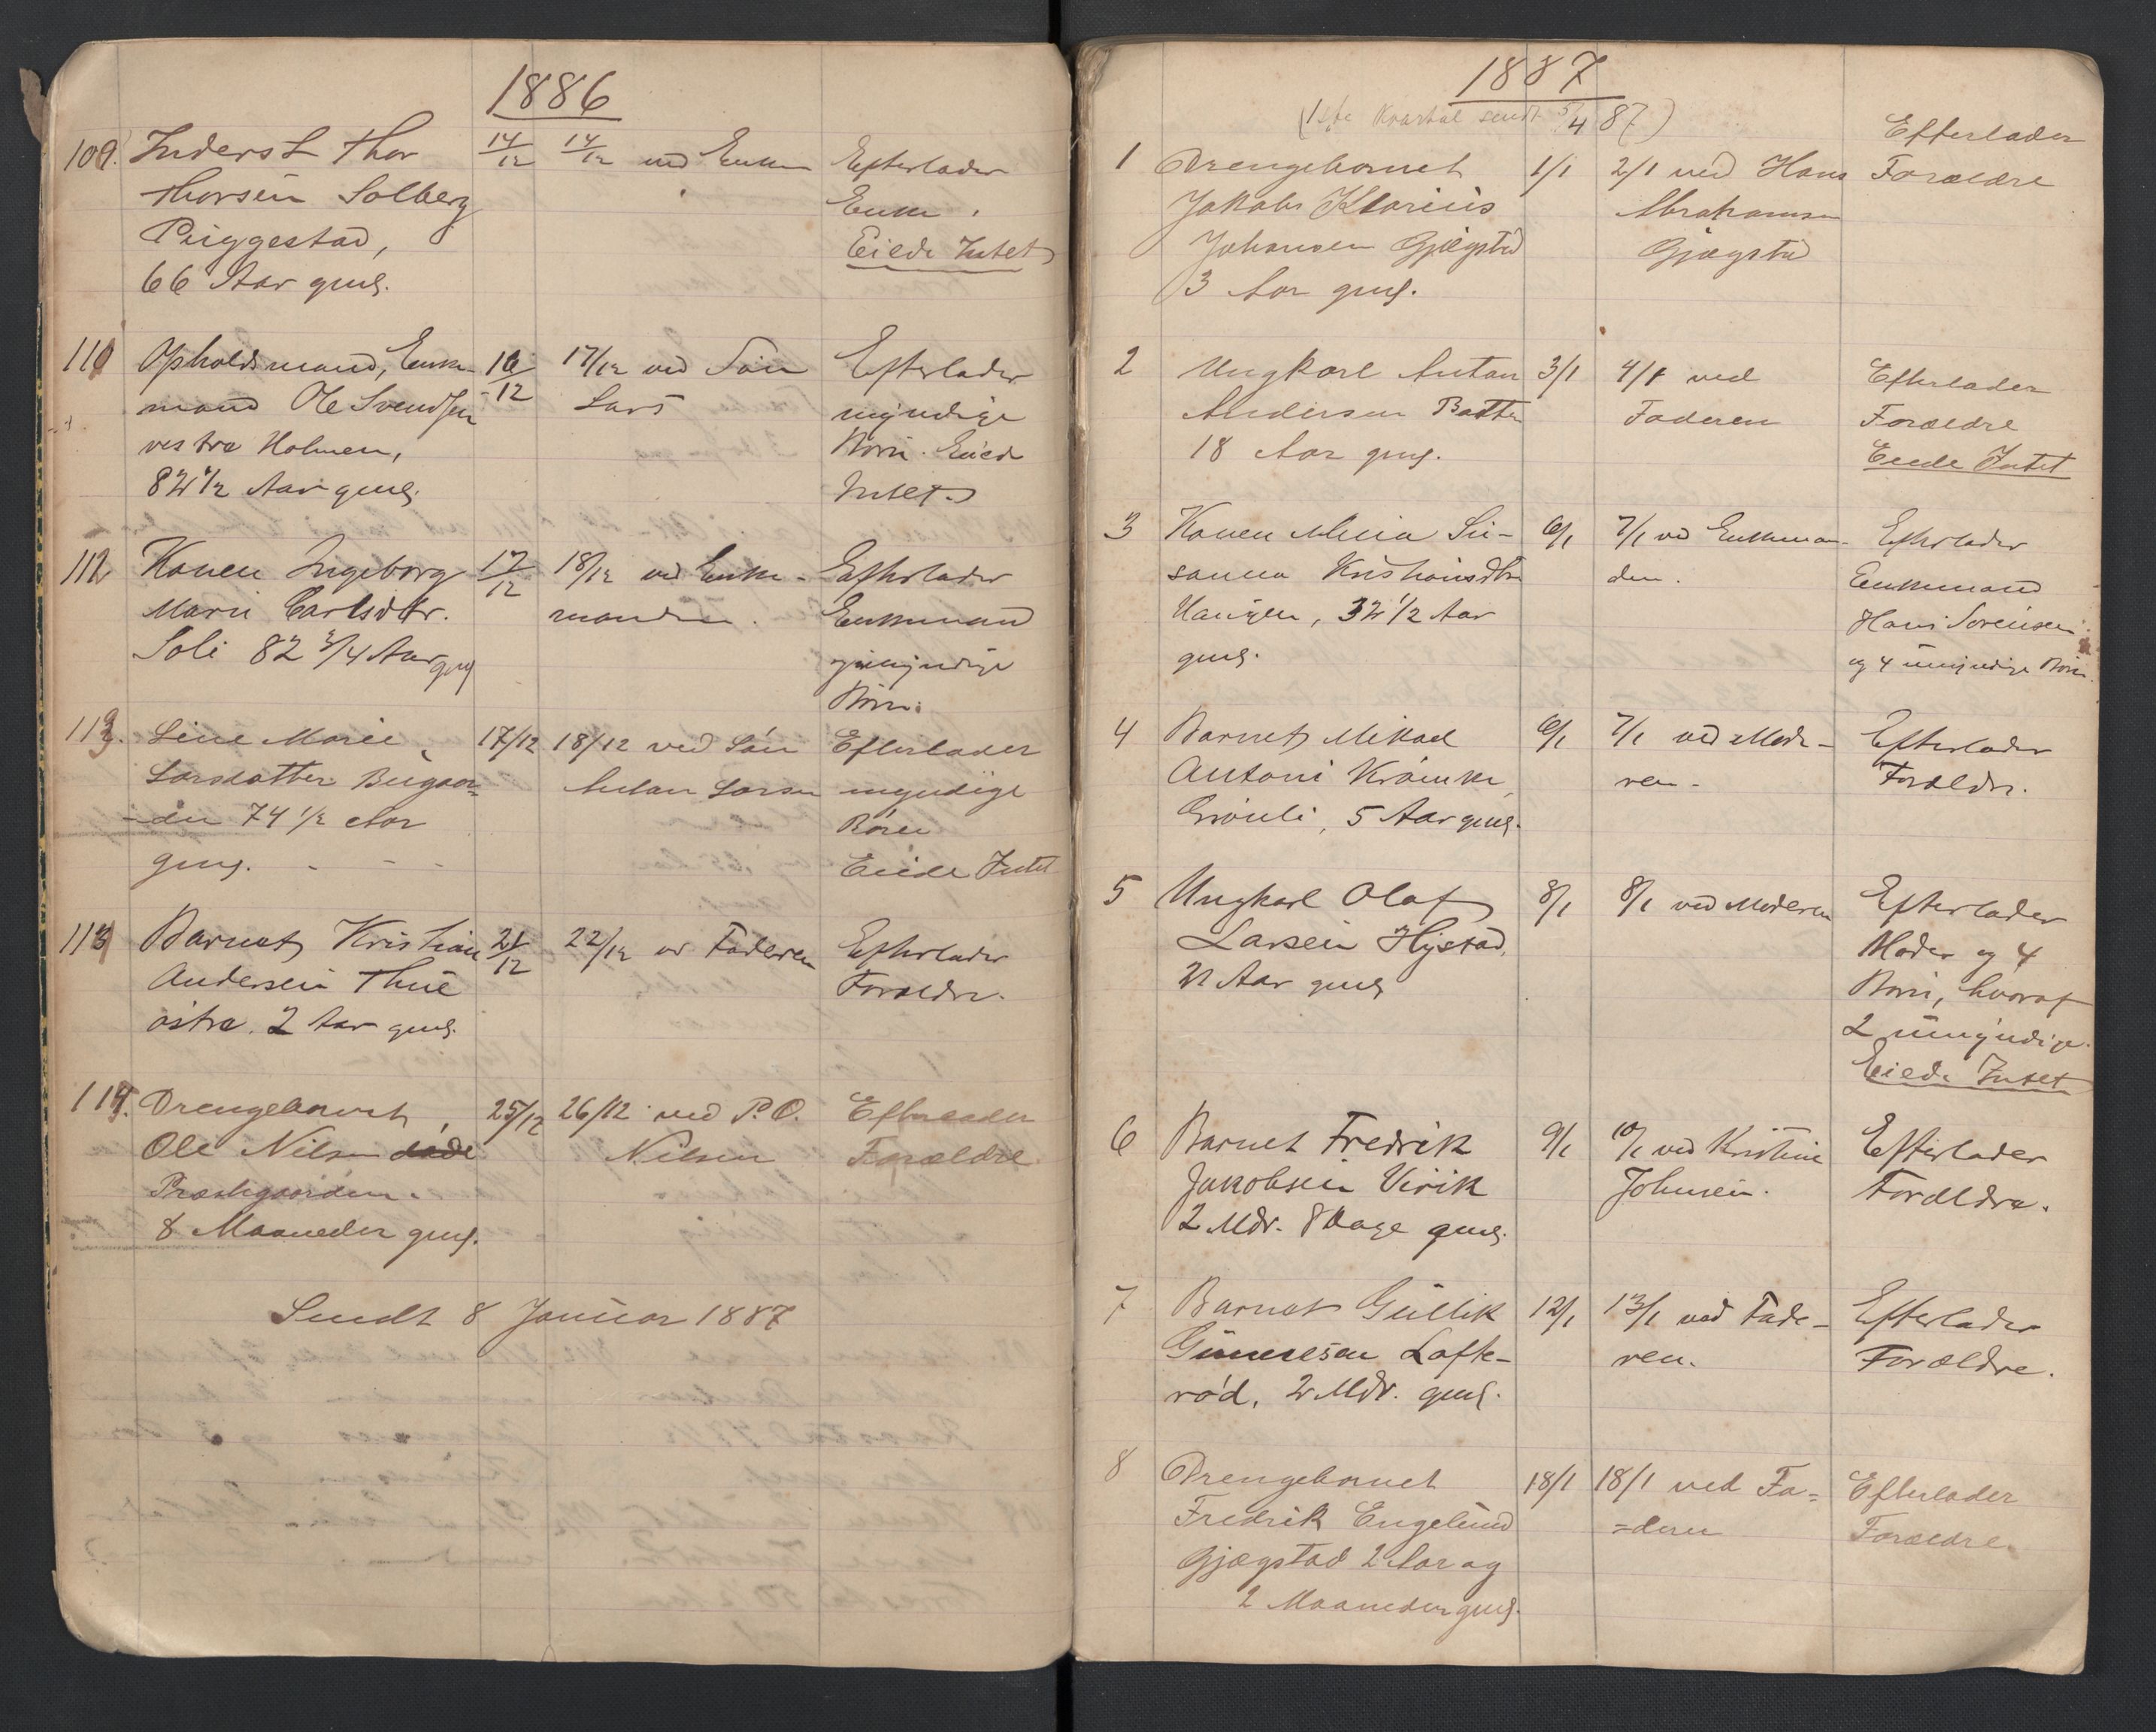 1886
109. Inderst Thor 14/12 14/12 ved Enken Efterlader
Thorsen Solberg Enke.
Puggestad, Eiede Intet
66 Aar gml.
110 Opholdsmand, Enke- 16/12 17/12 ved Søn Efterlader
mand Ole Svendsen Lars myndige
vestre Holmen, Børn. Eiede
82 1/2 Aar gml. Intet.
112 Konen Ingeborg 17/12 18/12 ved Enke- Efterlader
Marie Carlsdtr. manden. Enkemand
Soli 82 3/4 Aar gml myndige
Børn.
113. Line Marie 17/12 18/12 ved Søn Efterlader
Larsdatter Bugaar= Anton Larsen myndige
-den 74 1/2 Aar Børn
gml. - - - Eiede Intet
113 Barnet Kristian 21/12 22/12 v Faderen Efterlader
Andersen Thue Forældre.
østre. 2 Aar gml.
114. Drengebarnet 25/12 26/12 ved P.O. Efterlader
Ole Nilsen døde Nilsen Forældre.
Præstegaarden.
8 Maaneder gml.
Sendt 8 Januar 1887
1887
(1ste Kvartal sendt 5/4 87)
Efterlader
1 Drengebarnet 1/1 2/1 ved Hans Forældre
Jakob Klarius Abrahamsen
Johansen Gjøgstad Gjøgstad
3 Aar gml.
2 Ungkarl Anton 3/1 4/1 ved Efterlader
Andersen Faderen Forældre
18 Aar gml. Eiede Intet
3 Konen Mina Su- 6/1 7/1 ved Enkeman- Efterlader
sanna Kristiansdtr den. Enkemand
Haugen, 32 1/2 Aar Hans Sørensen
gml. og 4 umyndige Børn.
4 Barnet Mikael 6/1 7/1 ved Mode- Efterlader
Antoni ren. Forældre.
Grønli, 5 Aar gml.
5 Ungkarl Olaf 8/1 8/1 ved Moderen Efterlader
Larsen Hystad, Moder og 4
21 Aar gml Børn, hvoraf
2 umyndige.
Eiede Intet
6 Barnet Fredrik 9/1 10/1 ved Kristine Efterlader
Jakobsen Virik Johnsen. Forældre.
2 Mdr. 8 Dage gml.
7 Barnet Gullik 12/1 13/1 ved Fade- Efterlader
Gunnesen Lofte- ren. Forældre.
rød, 2 Mdr. gml.
8 Drengebarnet 18/1 18/1 ved Fa= Efterlader
Fredrik Engelund =deren Forældre.
Gjøgstad 2 Aar og
2 Maaneder gml.